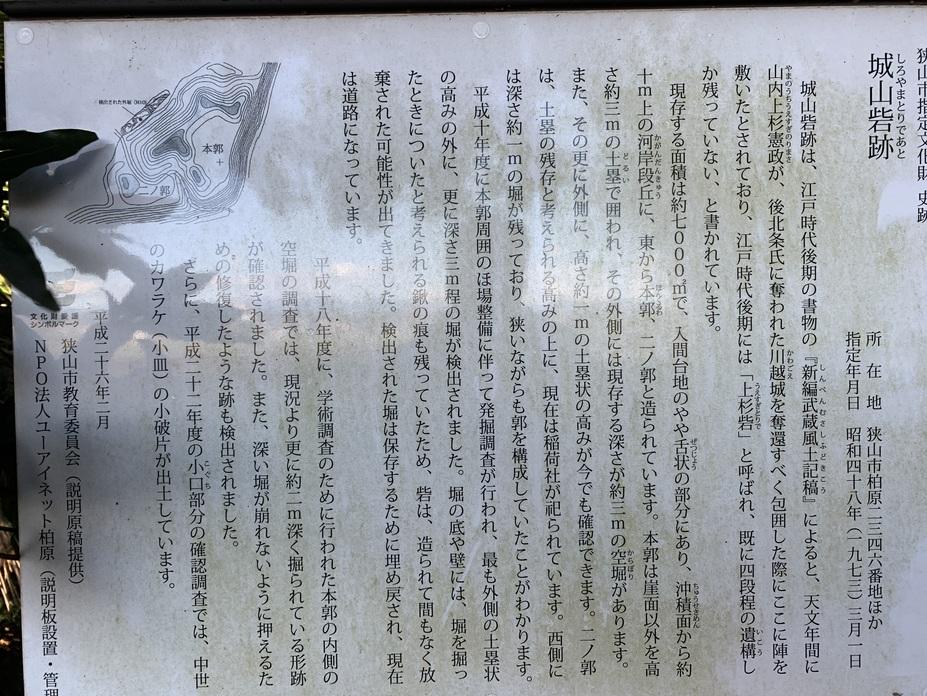 狭山市指定文化財 史跡
しろやまとりであと
城山砦跡
所在地 狭山市柏原二三四六番地ほか
指定年月日 昭和四十八年(一九七三)三月一日
城山砦跡は、江戸時代後期の書物の『新編武蔵風土記稿』によると、天文年間に
しんぺんむさしふどきこう
山内上杉憲政が、後北条氏に奪われた川越城を奪還すべく包囲した際にここに陣を
やまのうちうえすぎのりまさ
かわごえ
敷いたとされており、江戸時代後期には「上杉砦」と呼ばれ、既に四段程の遺構し
うえすぎとりで
いこう
か残っていない、と書かれています。
現存する面積は約七〇〇〇㎡で、入間台地のやや舌状の部分にあり、沖積面から約
ぜつじょう
ちゅうせきめん
十m上の河岸段丘に、東から本郭、二ノ郭と造られています。本郭は崖面以外を高
かがんだんきゅう
ほんぐるわ
さ約三mの土塁で囲われ、その外側には現存する深さが約三mの空堀があります。
どるい
からぼり
また、その更に外側に、高さ約一mの土塁状の高みが今でも確認できます。二ノ郭
は、土塁の残存と考えられる高みの上に、現在は稲荷社が祀られています。西側に
は深さ約一mの堀が残っており、狭いながらも郭を構成していたことがわかります。
平成十年度に本郭周囲のほ場整備に伴って発掘調査が行われ、最も外側の土塁状
の高みの外に、更に深さ三m程の堀が検出されました。堀の底や壁には、堀を掘っ
たときについたと考えられる鍬の痕も残っていたため、砦は、造られて間もなく放
棄された可能性が出てきました。検出された堀は保存するために埋め戻され、現在
は道路になっています。
平成十八年度に、学術調査のために行われた本郭の内側の
空堀の調査では、現況より更に約二m深く掘られている形跡
が確認されました。また、深い堀が崩れないように押えるた
めの修復したような跡も検出されました。
さらに、平成二十二年度の小口部分の確認調査では、中世
こぐち
のカワラケ(小皿)の小破片が出土しています。
検出された外堀
本郭
二ノ郭
文化財愛護
シンボルマーク
平成二十六年二月
狭山市教育委員会(説明原稿提供)
NPO法人ユーアイネット柏原(説明板設置・管理